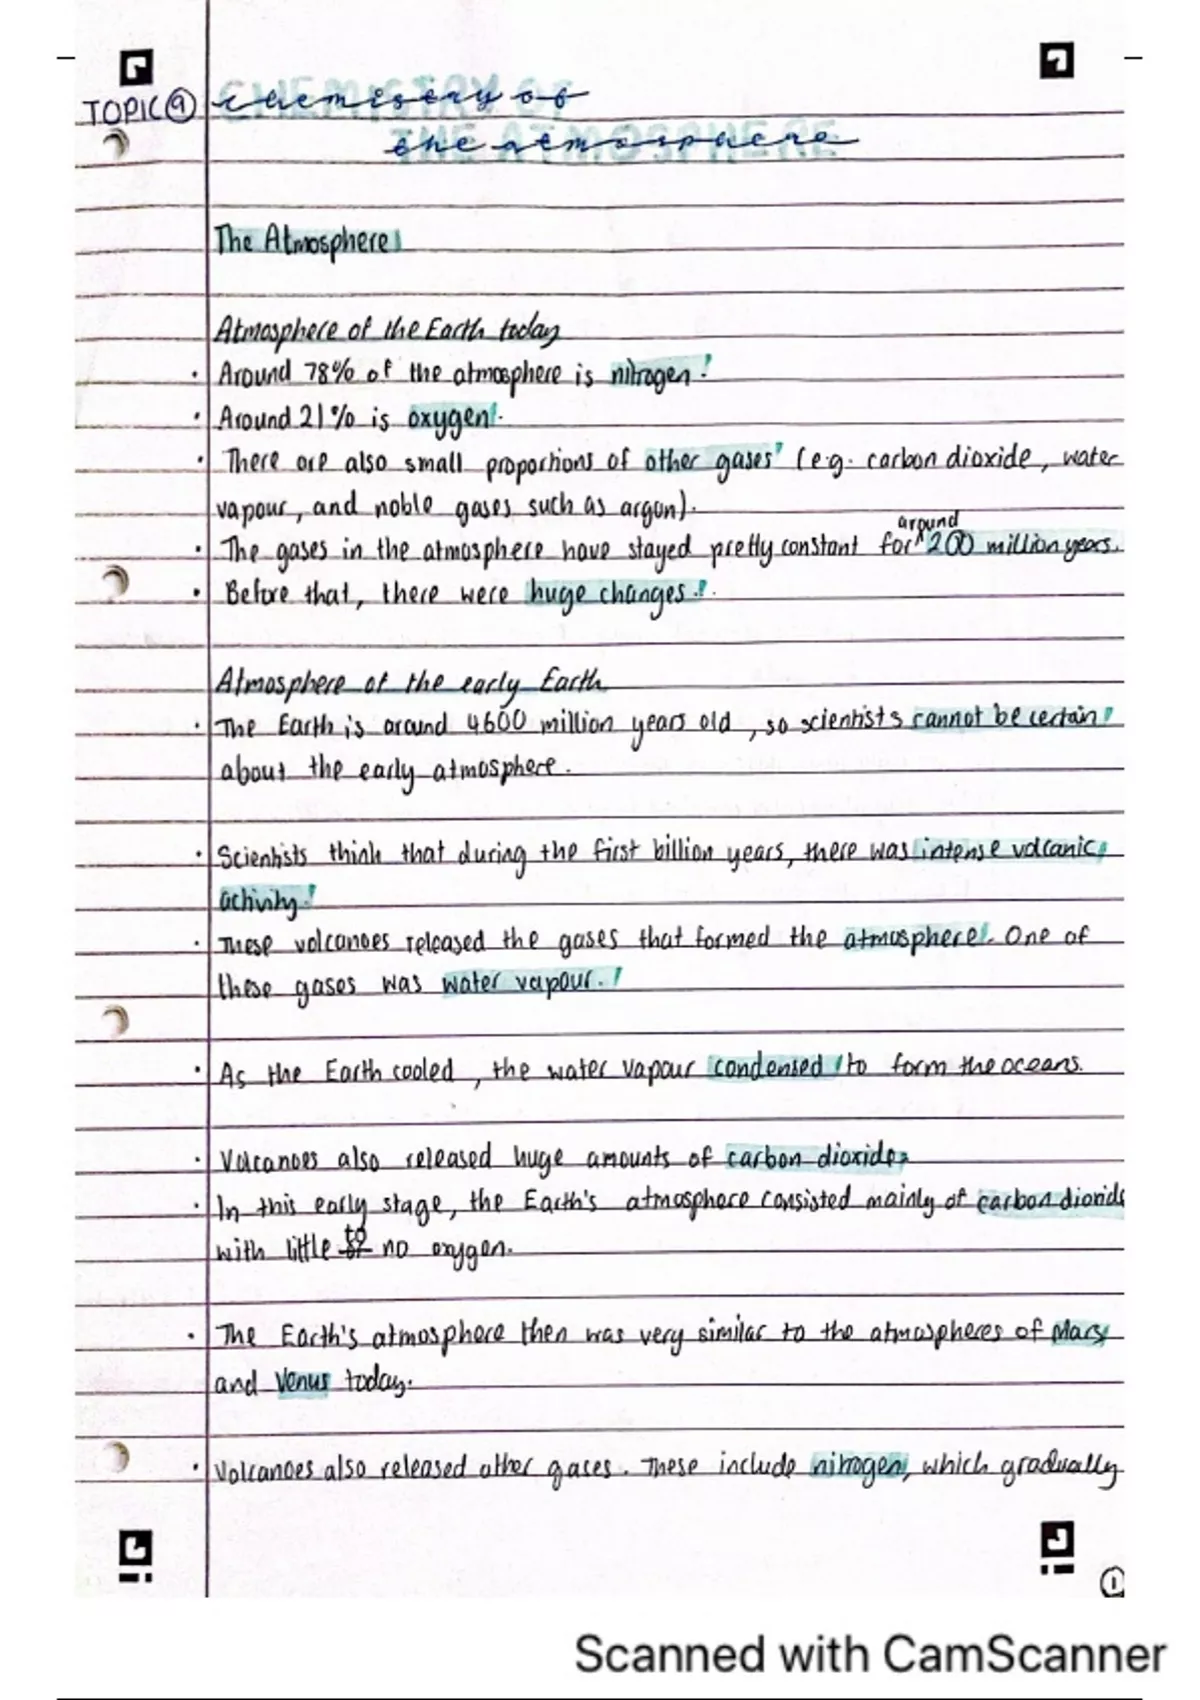 TOPIC 9 chemistry of
CHEMISTRY OF
the atmosphere
THE ATMOSPHERE
The Atmosphere
Atmosphere of the Earth today
· Around 78% of the atmosphere is nitrogen.
· Around 21% is oxygen.
· There are also small proportions of other gases (e.g. carbon dioxide, water
vapour, and noble gases such as argon).
around
· The gases in the atmosphere have stayed pretty constant for ^ 200 million years.
· Before that, there were huge changes.
Atmosphere of the early Earth
· The Earth is around 4600 million years old, so scientists cannot be certain
about the early atmosphere.
· Scientists think that during the first billion years, there was intense volcanic
activity.
· These volcanoes released the gases that formed the atmosphere. One of
these gases was water vapour.
· As the Earth cooled, the water vapour condensed to form the oceans.
· Volcanoes also released huge amounts of carbon dioxide.
· In this early stage, the Earth's atmosphere consisted mainly of carbon dioxide
with little to no oxygen.
· The Earth's atmosphere then was very similar to the atmospheres of Mars
and Venus today.
· Volcanoes also released other gases. These include nitrogen, which gradually
1
Scanned with CamScanner